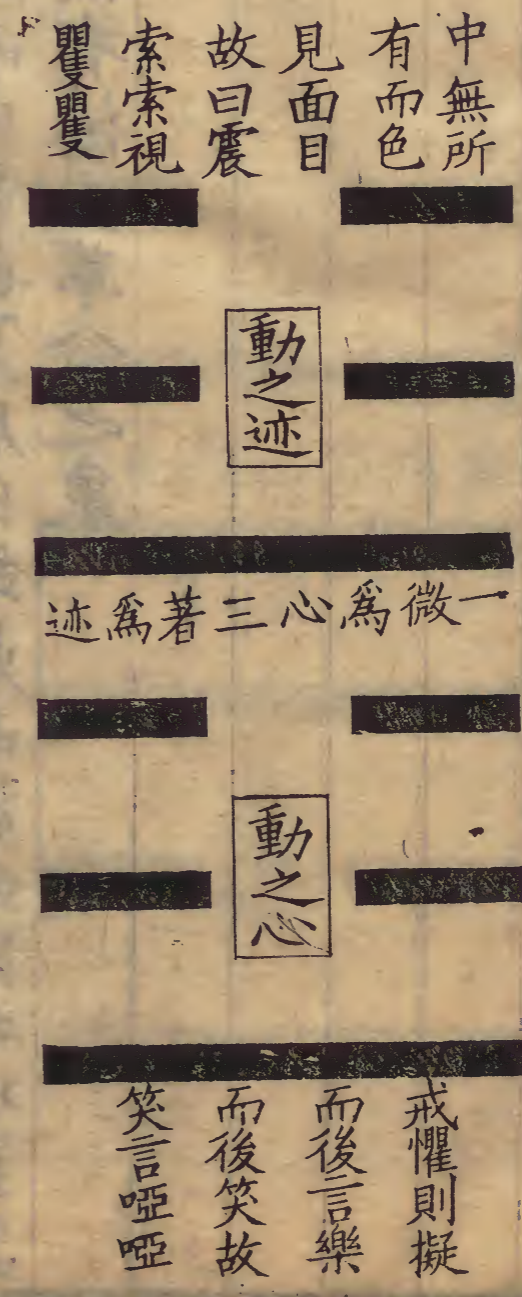 中無所
有而色
見面目
故曰震
索索視
矍矍
動之迹
一微爲心三著爲迹
動之心
戒懼則擬
而後言樂
而後笑故
笑言啞啞